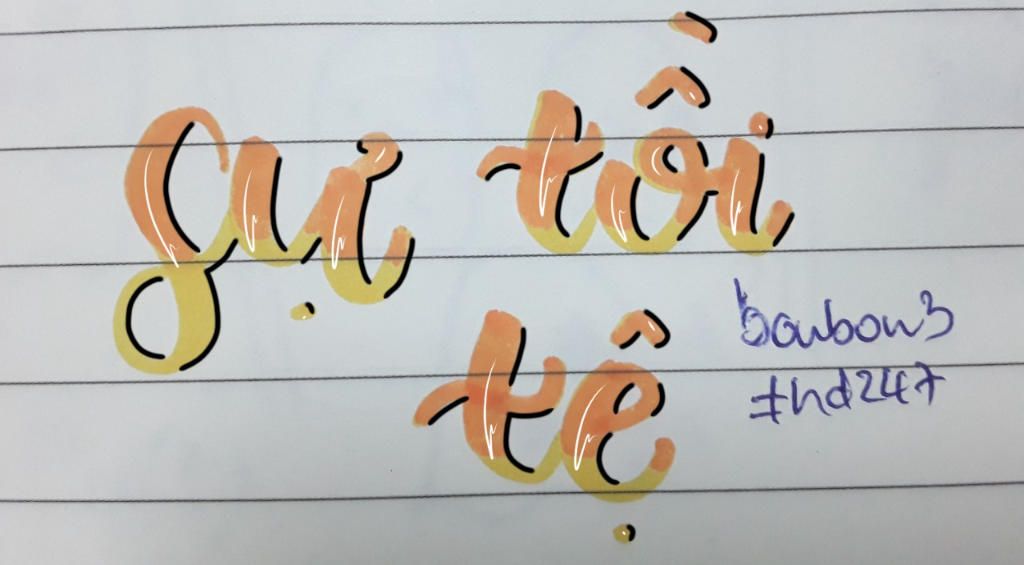 sự tồi
tệ
bonbon3
#hd247